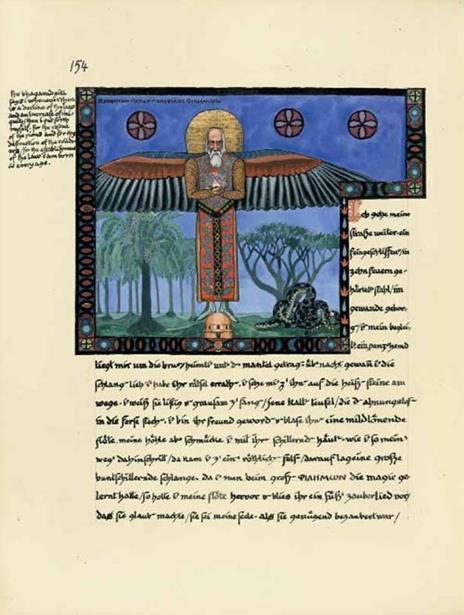 154
The bhagavadgita
says: whenever there
is a decline of the law
and an increase of ini-
quity / then I put forth
myself. for the rescue
of the pious and for the
destruction of the evildo-
ers / for the establishment
of the law I am born
in every age.
Ich gehe meine
straße weiter. ein
feingeschliffen' / in
zehn feuern ge-
härtet' stahl / im
gewande gebor-
g' / ist mein beglei-
t'. ein panzerhemd
liegt mir um die brust / heimli' unt' d' mantel getrag'. üb' nacht gewan' i' die
schlang' lieb i' habe ihr räthsel errath'. i' setze mi' z' ihn' auf die heiß' steine am
wege. i' weiß sie listig u' grausam z' fang' / jene kalt' teufel / die d' ahnungslos'
in die ferse stech'. i' bin ihr freund geword' u' blase ihn' eine mildtönende
flöte. meine höhle ab' schmücke i' mit ihr' schillernd' häut'. wie i' so mein'
weg' dahinschritt / da kam i' z' ein' röthlich' fels' / darauf lag eine große
buntschillernde schlange. da i' nun beim groß' ΦΙΛΗΜΩΝ die magie ge-
lernt hatte / so holte i' meine flöte hervor u' blies ihr ein süß' zauberlied vor
daß sie glaub' machte / sie sei meine seele. als sie genügend bezaubert war /